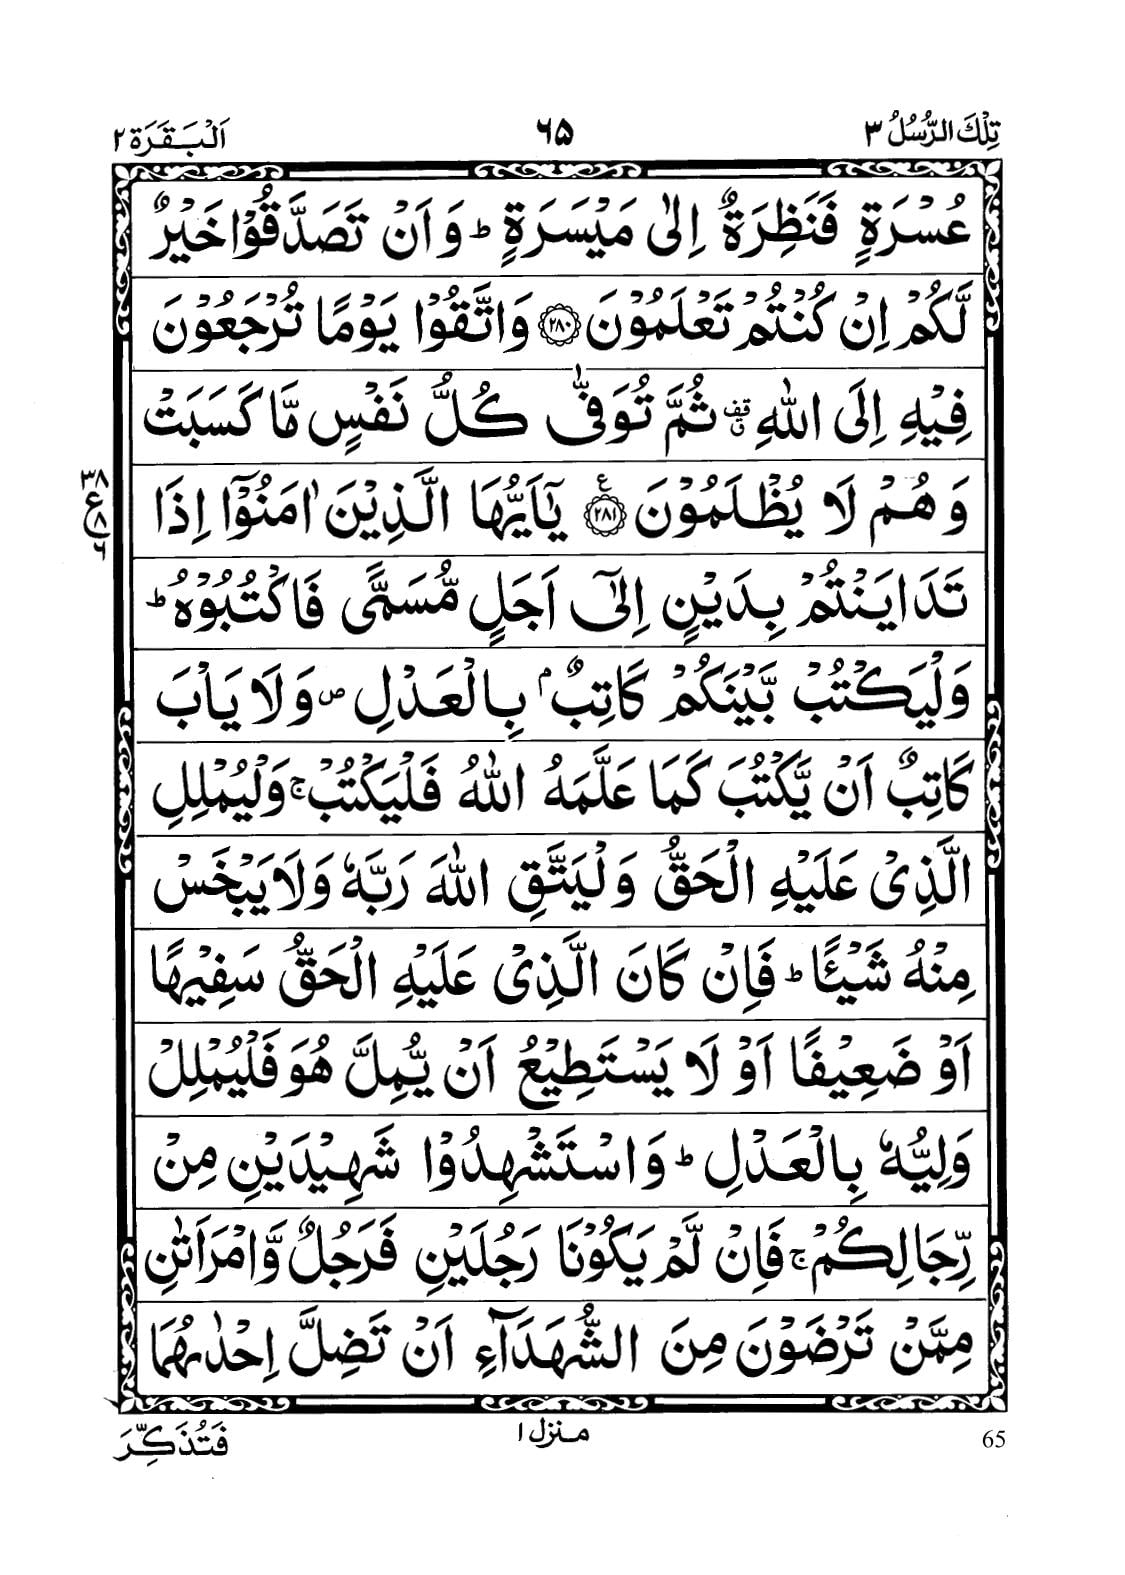 تِلْكَ الرُّسُلُ ٣
٦٥
اَلْبَقَرَة ٢
عُسْرَةٍ فَنَظِرَةٌ اِلٰى مَيْسَرَةٍ ؕ وَ اَنْ تَصَدَّقُوْا خَيْرٌ
لَّكُمْ اِنْ كُنْتُمْ تَعْلَمُوْنَ ﴿٢٨٠﴾ وَاتَّقُوْا يَوْمًا تُرْجَعُوْنَ
فِيْهِ اِلَى اللّٰهِ ۗقف ثُمَّ تُوَفّٰى كُلُّ نَفْسٍ مَّا كَسَبَتْ
وَ هُمْ لَا يُظْلَمُوْنَ ﴿٢٨١﴾ ع يٰۤاَيُّهَا الَّذِيْنَ اٰمَنُوْۤا اِذَا
٣٨ ع ٨ ٦
تَدَايَنْتُمْ بِدَيْنٍ اِلٰۤى اَجَلٍ مُّسَمًّى فَاكْتُبُوْهُ ؕ
وَلْيَكْتُبْ بَّيْنَكُمْ كَاتِبٌۢ بِالْعَدْلِ ۪ وَلَا يَاْبَ
كَاتِبٌ اَنْ يَّكْتُبَ كَمَا عَلَّمَهُ اللّٰهُ فَلْيَكْتُبْ ۚ وَلْيُمْلِلِ
الَّذِىْ عَلَيْهِ الْحَقُّ وَلْيَتَّقِ اللّٰهَ رَبَّهٗ وَلَا يَبْخَسْ
مِنْهُ شَيْـًٔا ؕ فَاِنْ كَانَ الَّذِىْ عَلَيْهِ الْحَقُّ سَفِيْهًا
اَوْ ضَعِيْفًا اَوْ لَا يَسْتَطِيْعُ اَنْ يُّمِلَّ هُوَ فَلْيُمْلِلْ
وَلِيُّهٗ بِالْعَدْلِ ؕ وَاسْتَشْهِدُوْا شَهِيْدَيْنِ مِنْ
رِّجَالِكُمْ ۚ فَاِنْ لَّمْ يَكُوْنَا رَجُلَيْنِ فَرَجُلٌ وَّامْرَاَتٰنِ
مِمَّنْ تَرْضَوْنَ مِنَ الشُّهَدَآءِ اَنْ تَضِلَّ اِحْدٰىهُمَا
65
منزل ١
فَتُذَكِّرَ